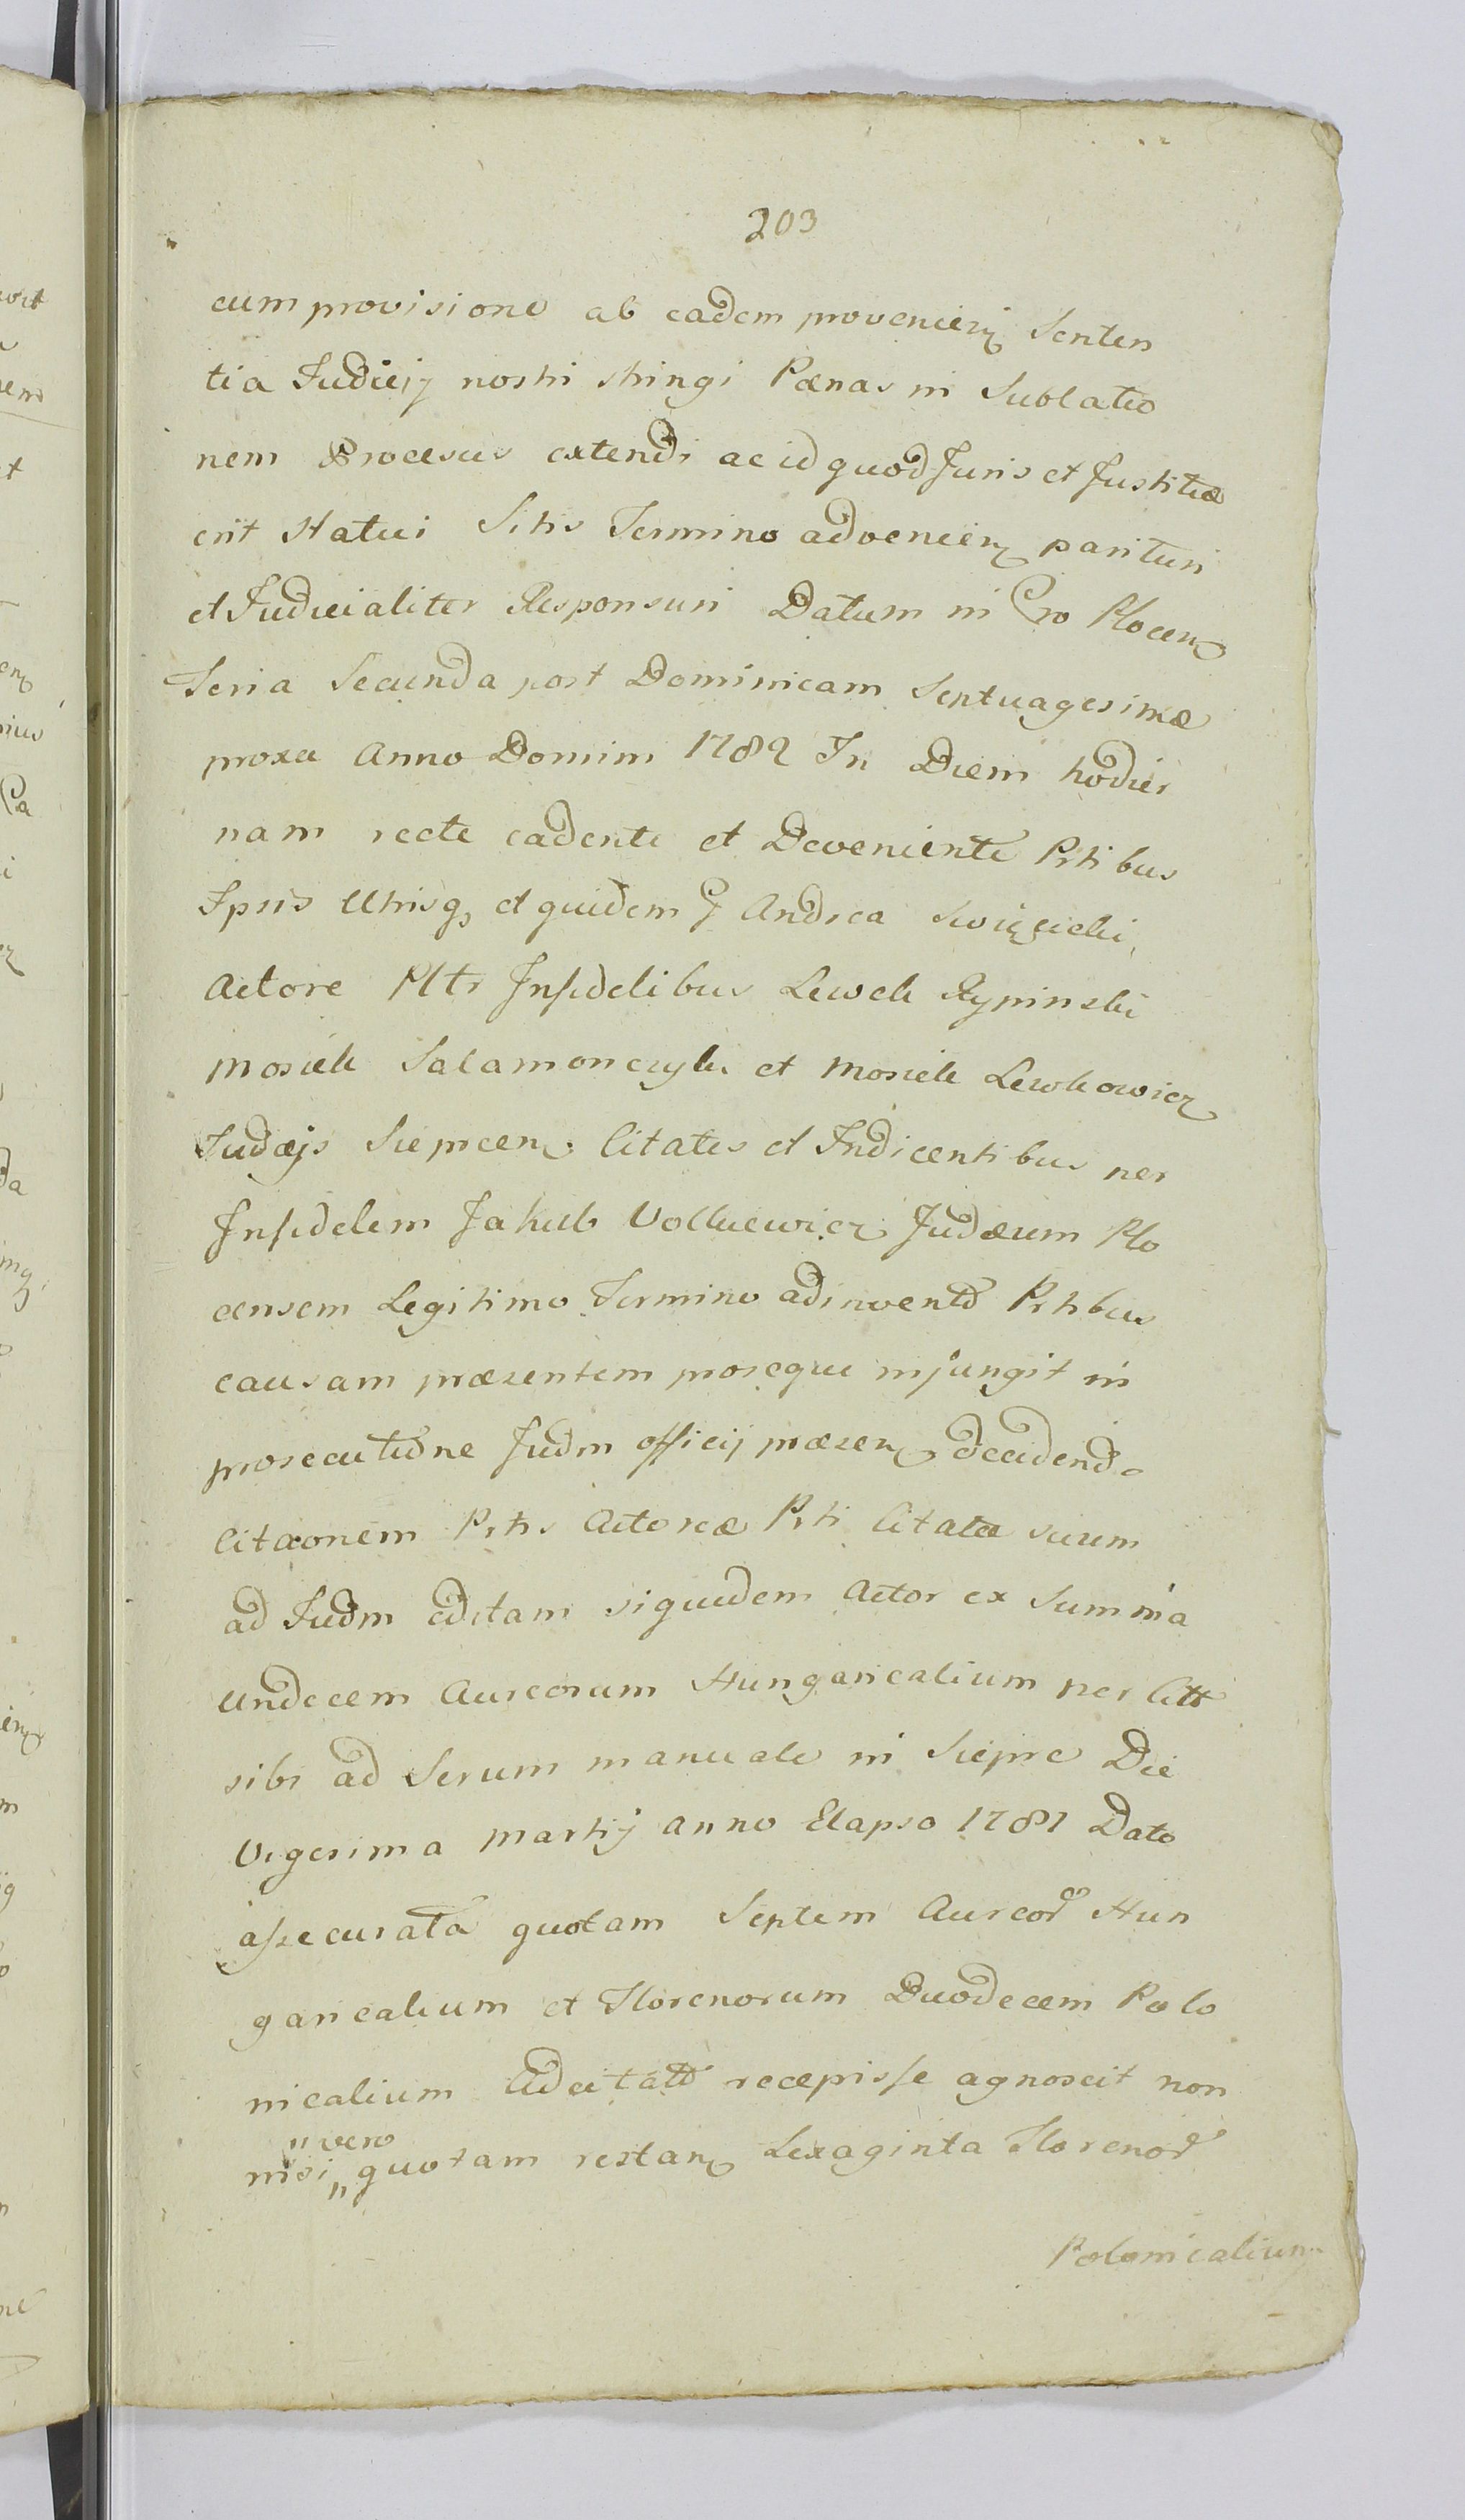 203
cum provisione ab eadem provenienẽ Senten
tia Judicij nostri stringi Pænas in Sublatio
nem Processus extendi ac id quod Juris et Justitiæ
erit Statui Sitis Termino advenienẽ parituri
et Judicialiter Responsuri Datum in Cro Plocenẽ
Feria Secunda post Dominicam Septuagesimæ
proxa Anno Domini 1782 In Diem hodier
nam recte cadente et Deveniente Prtibus
Ipsis Utrisq et quidem G Andrea Swięcicki
Actore Pltr Infidelibus Lewek Rypinski
Mosiek Salamonczyk et Mosiek Lewkowicz
Judæjs Sieprcenẽ Citates et Indicentibus per
Infidelem Jakub Judæum Plo
censem Legitimo Termino adinventd Prtibus
causam præsentem prosequi injungit in
prosecutione Judm officij præsenẽ decidend
Citaonem Prtis Actoreæ Prti Citatæ suum
ad Judm editam siquidem Actor ex Summa
Undecem Aureorum Hungaricalium per Citt
sibi ad Serum manuale in Siepre Die
Vigesima Martij anno Elapso 1781 Dato
assecurata quotam Septem Aureor Hun
garicalium et Florenorum Duodecem Polo
nicalium Adcitatt recepisse agnoscit non
"vero
nisi " quotam restanẽ Sexaginta Florenor
Polonicalium